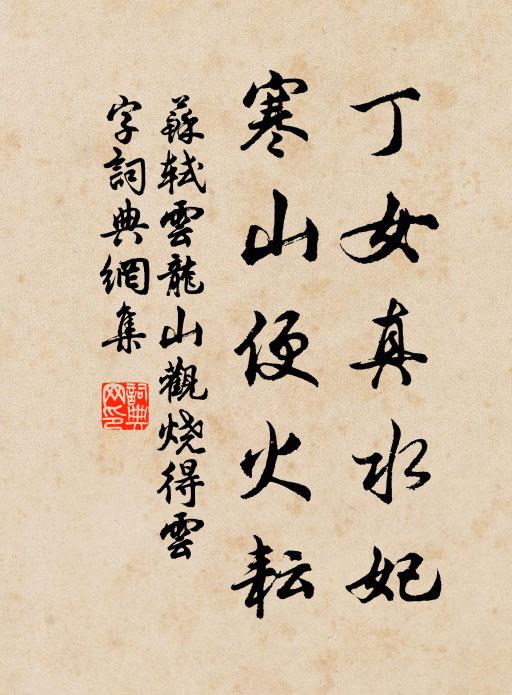 丁女真水妃
寒山便火耘
蘇軾雲龍山觀燒得雲
字詞典網集
詞典網印